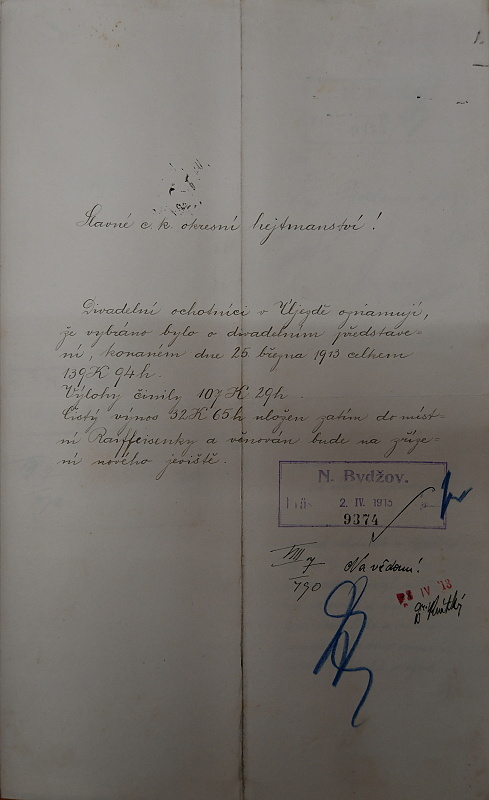 Slavné c. k. okresní hejtmanství!
Divadelní ochotníci v Újezdě oznamují,
že vybráno bylo o divadelním představe-
ní, konaném dne 25. března 1913 celkem
139 K 94 h.
Výlohy činily 107 K 29 h
Čistý výnos 32 K 65 h uložen zatím do míst-
ní Raiffeisenky a věnován bude na zříze-
ní nového jeviště.
N. Bydžov.
2. IV. 1913
9374
VIII 7
790
Na vědomí!
IV 13